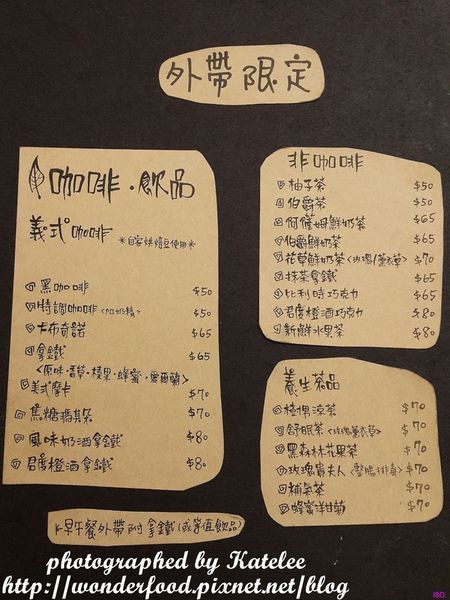 外帶限定
咖啡．飲品
義式咖啡 ※自家烘焙豆使用※
黑咖啡 $50
特調咖啡<加奶精> $50
卡布奇諾 $65
拿鐵 $65
<原味·香草·榛果·蜂蜜·愛爾蘭>
美式摩卡 $70
焦糖瑪其朵 $70
風味奶酒拿鐵 $80
君度橙酒拿鐵 $80
非咖啡
柚子茶 $50
伯爵茶 $50
阿薩姆鮮奶茶 $65
伯爵鮮奶茶 $65
花草鮮奶茶<玫瑰/薰衣草> $70
抹茶拿鐵 $65
比利時巧克力 $65
君度橙酒巧克力 $80
新鮮水果茶 $80
養生茶品
涼茶 $70
舒眠茶<玫瑰薰衣草> $70
黑森林花果茶 $70
玫瑰貴夫人 $70
補氣茶 $70
蜂蜜洋甘菊 $70
早午餐外帶附拿鐵(或等值飲品)
photographed by Katelee
http://wonderfood.pixnet.net/blog